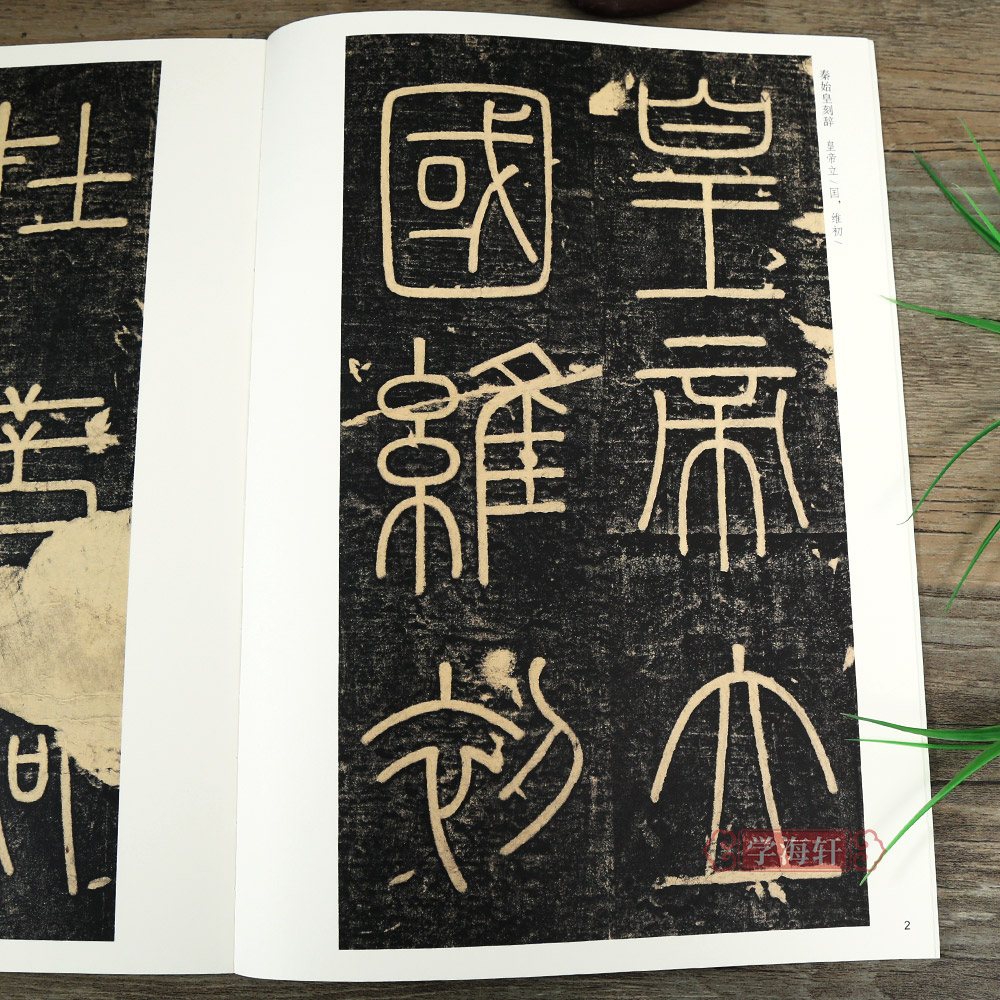 皇帝立
國維初
秦始皇刻辞 皇帝立/国，维初/
学海轩
2